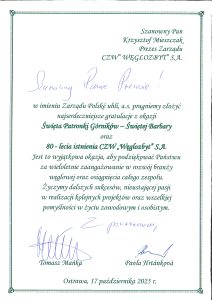 Szanowny Pan
Krzysztof Mieszczak
Prezes Zarządu
CZW "WĘGLOZBYT" S.A.
Szanowny Panie Prezesie!
w imieniu Zarządu Polské uhlí, a.s. pragniemy złożyć
najserdeczniejsze gratulacje z okazji
Święta Patronki Górników – Święta Barbary
oraz
80 - lecia istnienia CZW „Węglozbyt" S.A.
Jest to wyjątkowa okazja, aby podziękować Państwu
za wieloletnie zaangażowanie w rozwój branży
węglowej oraz osiągnięcia całego zespołu.
Życzymy dalszych sukcesów, nieustającej pasji
w realizacji kolejnych projektów oraz wszelkiej
pomyślności w życiu zawodowym i osobistym.
Z poważaniem
Tomasz Mańka Pavla Hrtánková
Ostrawa, 17 październik 2025 r.